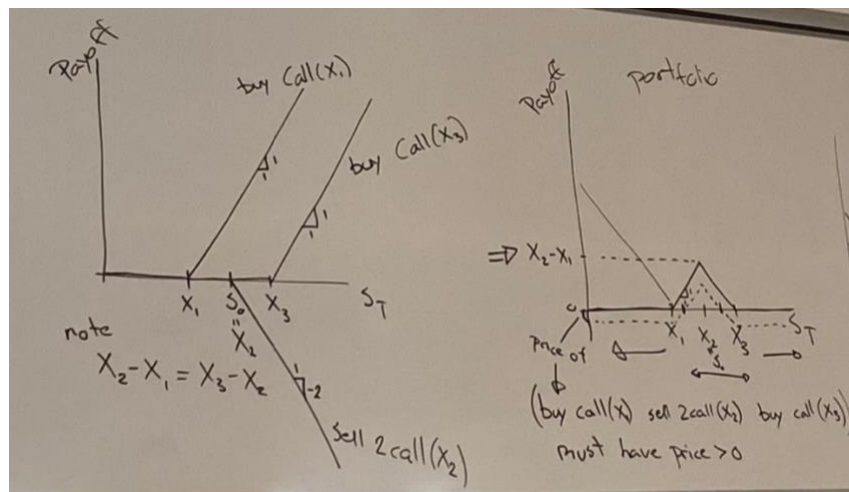 Payoff
buy Call(X₁)
buy Call(X₃)
1
1
1
X₁
S₀
X₃
S_T
"
X₂
note
X₂-X₁ = X₃-X₂
1
-2
Sell 2call(X₂)
Payoff
portfolio
⇒ X₂-X₁
0
X₁
X₂
X₃
S_T
"
S₀
Price of
(buy call(X) sell 2call(X₂) buy call(X₃))
must have price > 0